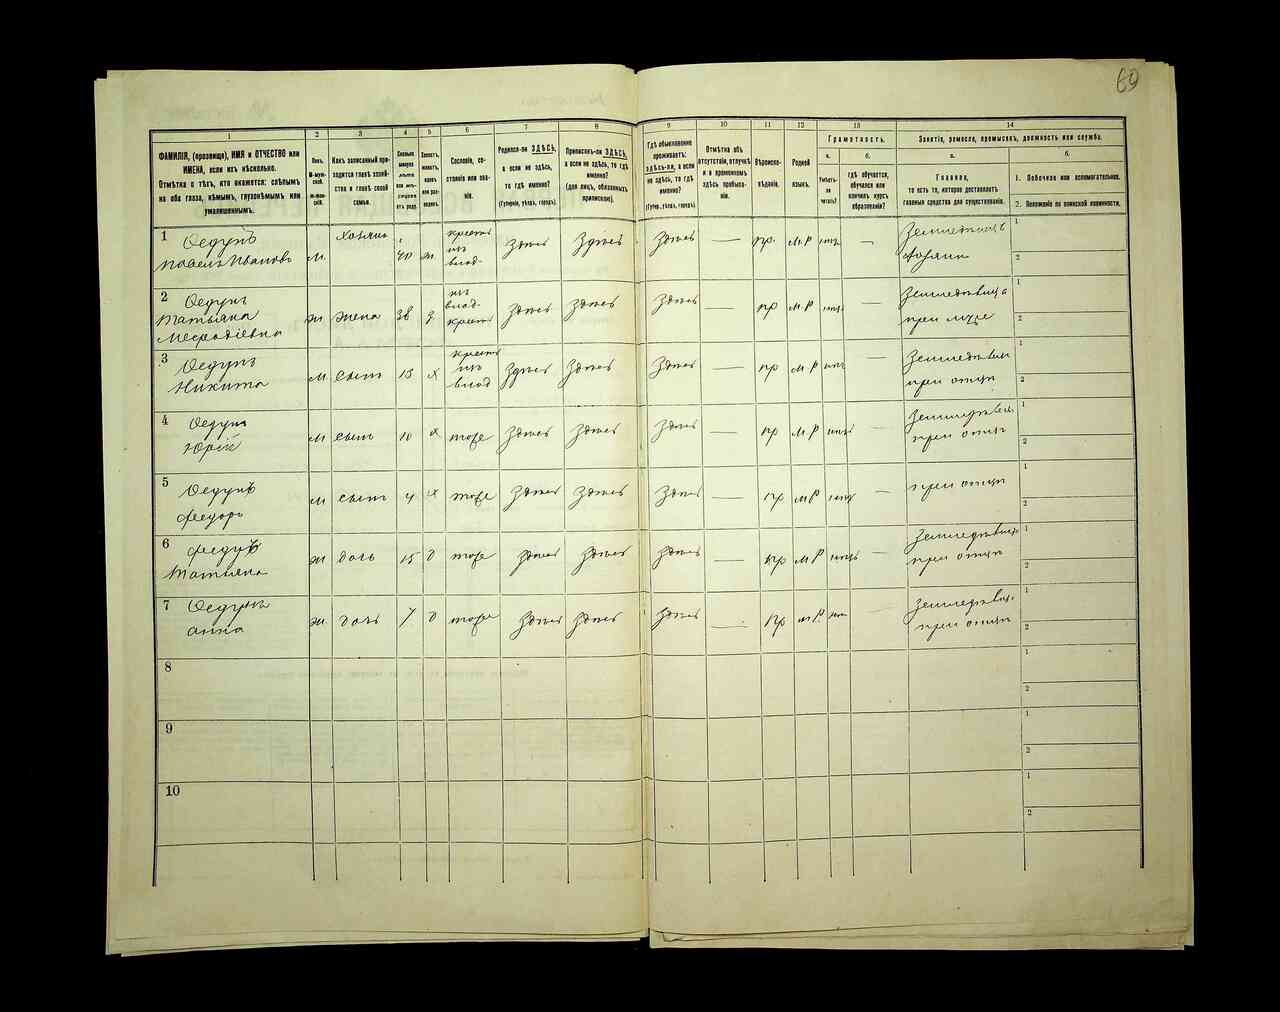 69
1 2 3 4 5 6 7 8 9 10 11 12 13 14
ФАМИЛІЯ, (прозвище), ИМЯ и ОТЧЕСТВО или
ИМЕНА, если ихъ нѣсколько.
Отмѣтка о тѣхъ, кто окажется: слѣпымъ
на оба глаза, нѣмымъ, глухонѣмымъ или
умалишеннымъ.
Полъ.
М-муж-
ской.
Ж-жен-
скій.
Какъ записанный при-
ходится главѣ хозяй-
ства и главѣ своей
семьи.
Сколько
минуло
лѣтъ
или мѣ-
сяцевъ
отъ роду.
Холостъ,
женатъ,
вдовъ
или раз-
веденъ.
Сословіе, со-
стояніе или зва-
ніе.
Родился-ли ЗДѢСЬ,
а если не здѣсь,
то гдѣ именно?
(Губернія, уѣздъ, городъ).
Приписанъ-ли ЗДѢСЬ,
а если не здѣсь, то гдѣ
именно?
(для лицъ, обязанныхъ
припискою).
Гдѣ обыкновенно
проживаетъ:
ЗДѢСЬ-ли, а если
не здѣсь, то гдѣ
именно?
(Губер., уѣздъ, городъ).
Отмѣтка объ
отсутствіи, отлучкѣ
и о временномъ
здѣсь пребыва-
ніи.
Вѣроиспо-
вѣданіе.
Родной
языкъ.
Грамотность.
а.
Умѣетъ-
ли
читать?
б.
гдѣ обучается,
обучался или
кончилъ курсъ
образованія?
Занятіе, ремесло, промыселъ, должность или служба.
а.
Главное,
то есть то, которое доставляетъ
главныя средства для существованія.
б.
1. Побочное или вспомогательное.
2. Положеніе по воинской повинности.
1 Федунъ хозяинъ
Павелъ Ивановъ М. 40 ж. крест. изъ влад. Здѣсь Здѣсь Здѣсь — пр. м.р. нѣтъ — Земледѣлецъ
хозяинъ
1
2
2 Федунъ
Татьяна ж жена 38 з изъ влад. крест. Здѣсь Здѣсь Здѣсь — пр м.р нѣтъ — Земледѣлица
при мужѣ
Мефодіевна
1
2
3 Федунъ
Никита м сынъ 13 х крест изъ влад Здѣсь Здѣсь Здѣсь — пр м.р нѣтъ —
при отцѣ
1
2
4 Федунъ
Юрій м сынъ 10 х тоже Здѣсь Здѣсь Здѣсь — пр м.р нѣтъ —
при отцѣ
1
2
5 Федунъ
Федоръ м сынъ 4 х тоже Здѣсь Здѣсь Здѣсь — пр м.р нѣтъ — при отцѣ
1
2
6 Федунъ
Татьяна ж дочь 15 д тоже Здѣсь Здѣсь Здѣсь — пр м.р нѣтъ — Земледѣлица
при отцѣ
1
2
7 Федунъ
Анна ж дочь 7 д тоже Здѣсь Здѣсь Здѣсь — пр м.р. —
при отцѣ
1
2
8
1
2
9
1
2
10
1
2